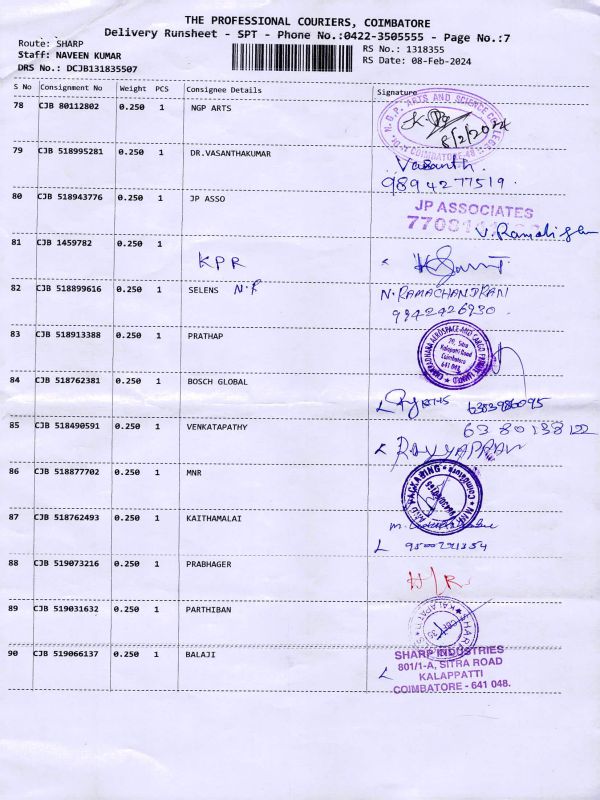 THE PROFESSIONAL COURIERS, COIMBATORE
Delivery Runsheet - SPT - Phone No.:0422-3505555 - Page No.:7
Route: SHARP
RS No.: 1318355
Staff: NAVEEN KUMAR
RS Date: 08-Feb-2024
DRS No.: DCJB131835507
S No Consignment No Weight PCS Consignee Details Signature
78 CJB 80112802 0.250 1 NGP ARTS
ARTS AND SCIENCE COLLEGE
8/2/2024
COIMBATORE-48
79 CJB 518995281 0.250 1 DR.VASANTHAKUMAR
Vasanth.
9894277519.
80 CJB 518943776 0.250 1 JP ASSO
JP ASSOCIATES
81 CJB 1459782 0.250 1
KPR
82 CJB 518899616 0.250 1 SELENS N.R
N.RAMACHANDRAN
9942426930.
83 CJB 518913388 0.250 1 PRATHAP
Kalapatti Road
Coimbatore
641 048
84 CJB 518762381 0.250 1 BOSCH GLOBAL
85 CJB 518490591 0.250 1 VENKATAPATHY
86 CJB 518877702 0.250 1 MNR
MNR
PACKAGING
Coimbatore
87 CJB 518762493 0.250 1 KAITHAMALAI
88 CJB 519073216 0.250 1 PRABHAGER
H/R
89 CJB 519031632 0.250 1 PARTHIBAN
SHARP
KALAPATTI
90 CJB 519066137 0.250 1 BALAJI
SHARP INDUSTRIES
801/1-A, SITRA ROAD
KALAPPATTI
COIMBATORE - 641 048.